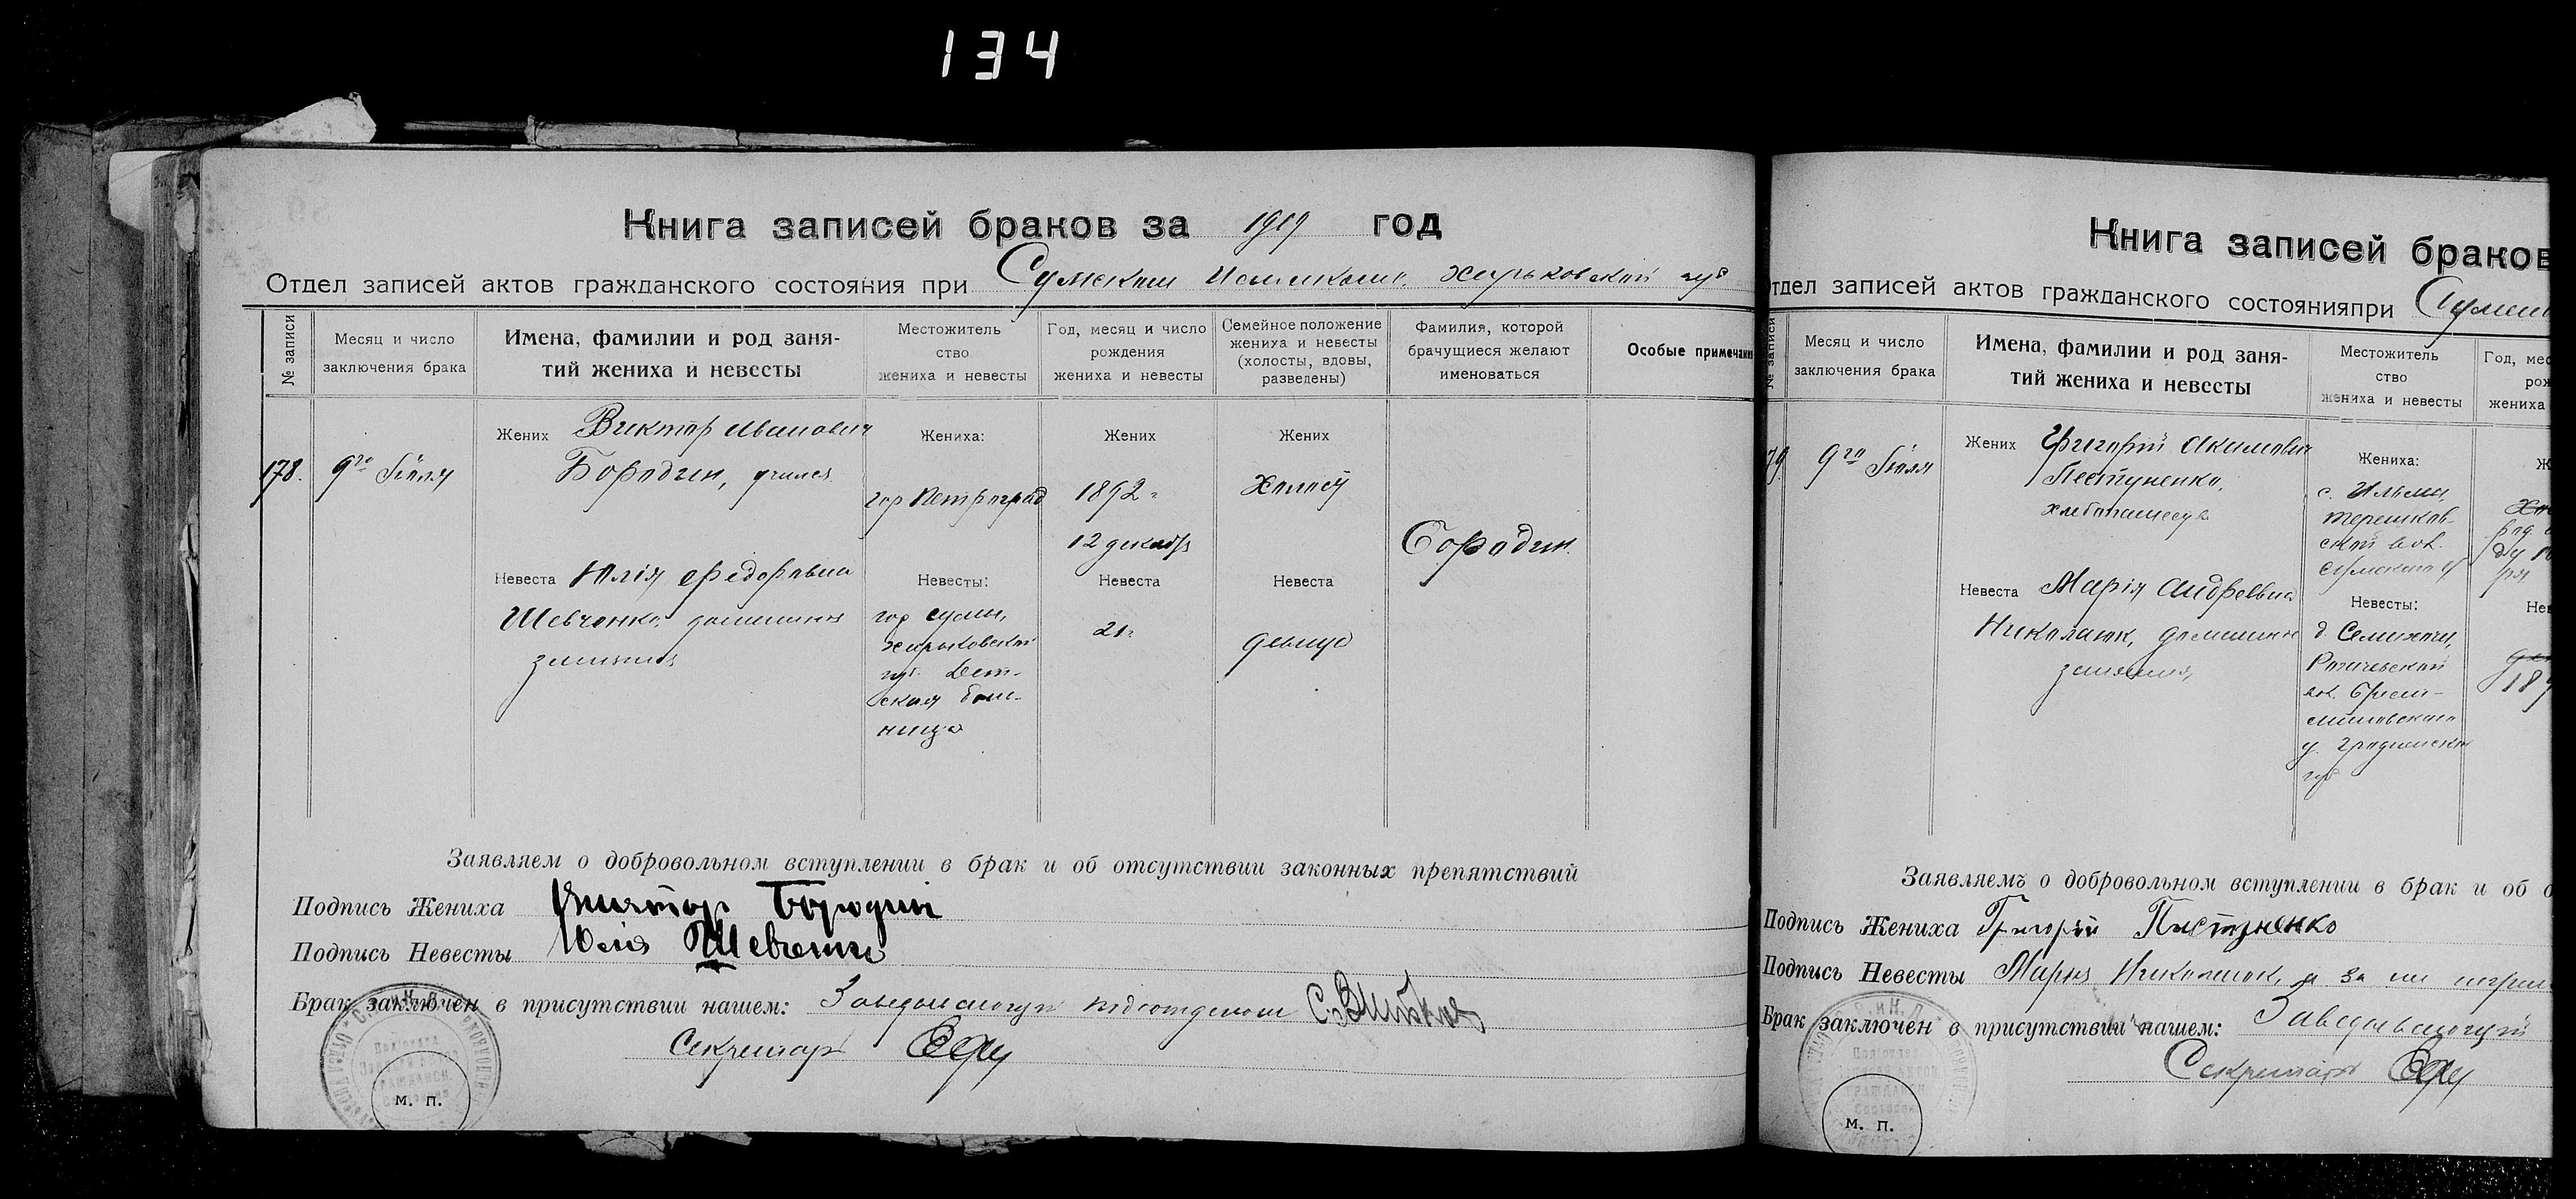 134
Книга записей браков за 1919 год
Отдел записей актов гражданского состояния при Сумском Исполкоме, Харьковской губ
№ записи
Месяц и число
заключения брака
Имена, фамилии и род заня-
тий жениха и невесты
Местожитель
ство
жениха и невесты
Год, месяц и число
рождения
жениха и невесты
Семейное положение
жениха и невесты
(холосты, вдовы,
разведены)
Фамилия, которой
брачущиеся желают
именоваться
Особые примечани
178.
9го Іюля
Жених Виктор Иванович
Бородин,
Невеста Юлія Федоровна
Шевченко, домашния
занятия
Жениха:
гор Петроград
Невесты:
гор Сумы,
Харьковской
губ. Дет-
ская боль-
ница
Жених
1892 г
12 декабр
Невеста
21 г
Жених
Холост
Невеста
девица
Бородин.
Заявляем о добровольном вступлении в брак и об отсутствии законных препятствий
Подпись Жениха Виктор Бородин
Подпись Невесты Юлія Шевченко
Брак заключен в присутствии нашем: Заведывающий подотделом
Секретарь
м. п.
Книга записей браков
тдел записей актов гражданского состоянияпри Сумском
№ записи
Месяц и число
заключения брака
Имена, фамилии и род заня-
тий жениха и невесты
Местожитель
ство
жениха и невесты
Год, мес
рож
жениха
79.
9го Іюля
Жених Григорій Акимович
Пестуненко,
хлебопашец
Невеста Марія Андреевна
Николаюк, домашния
занятия,
Жениха:
с. Ильмы,
терешков-
ской вол.
Сумского у
Невесты:
д. Семихочи,
вол. Брест-
литовского
у. Гродненской
губ
Ж
род.
Нев
189
Заявляемъ о добровольном вступлении в брак и об о
Подпись Жениха Григорій Пистуненко
Подпись Невесты Мария Николаюк, а за не
Брак заключен в присутствии нашем: Заведывающий
Секретарь
м. п.